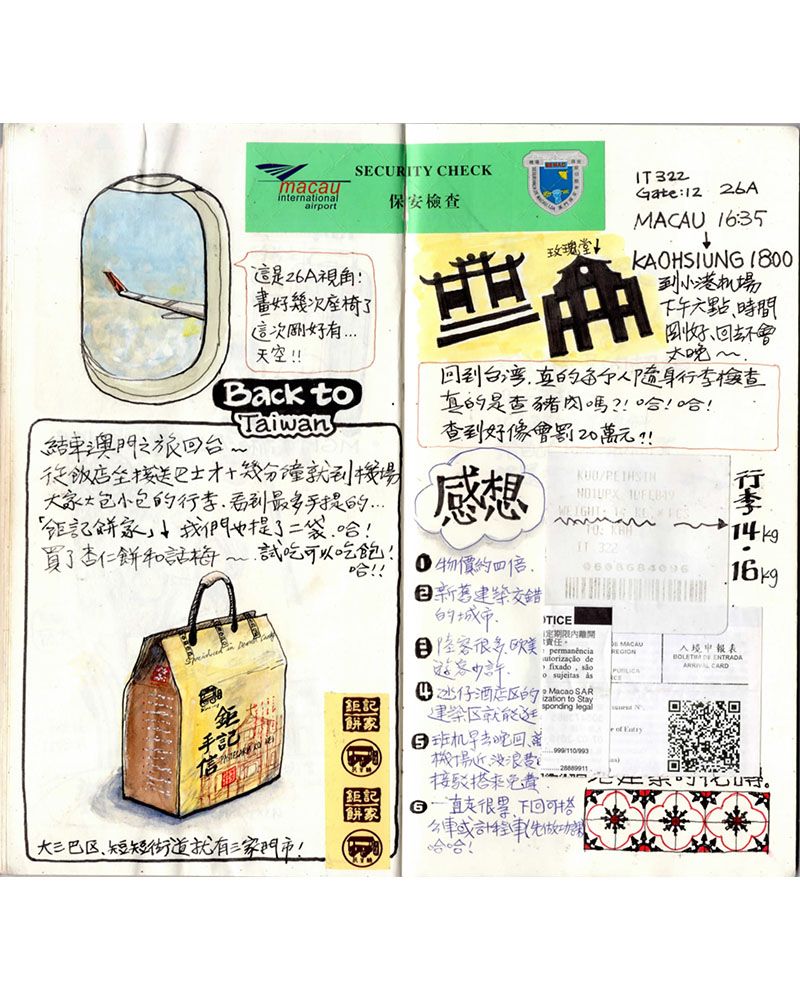 macau
international
airport
SECURITY CHECK
保安檢查
這是26A視角!
畫好幾次座椅了
這次剛好有...
天空!!
Back to
Taiwan
結束澳門之旅回台~
從飯店坐接送巴士才十幾分鐘就到機場
大家大包小包的行李.看到最多手提的...
「鉅記餅家」↓我們也提了二袋.哈!
買了杏仁餅和話梅~.試吃可以吃飽!
哈!!
鉅記
手信
鉅記
餅家
鉅記
餅家
大三巴区.短短街道就有三家門市!
IT 322
Gate:12 26A
MACAU 16:35
↓
KAOHSIUNG 1800
到小港机場
下午六點.時間
剛好.回去不會
太晚~.
玫瑰堂↓
回到台湾.真的每个人隨身行李檢查
真的是查豬肉嗎?!哈!哈!
查到好像會罰20萬元?!
感想
KUO/PEIHSIN
IT 322
0608684096
行李
14kg
16kg
❶物價約四倍.
❷新舊建築交錯
的城市.
❸陸客很多.歐美
❹氹仔酒店区的
建築区就能逛
❺班机早去晚回.
❻一直走很累.下回可搭
哈哈!
OTICE
定期限內離開
責任.
permanência
autorização de
fixado, são
sujeitas às
Macao SAR
ization to Stay
sponding legal
999/110/993
28889911
DE MACAU
REGION
PÚBLICA
RCE
入境申報表
BOLETIM DE ENTRADA
ARRIVAL CARD
e of Entry